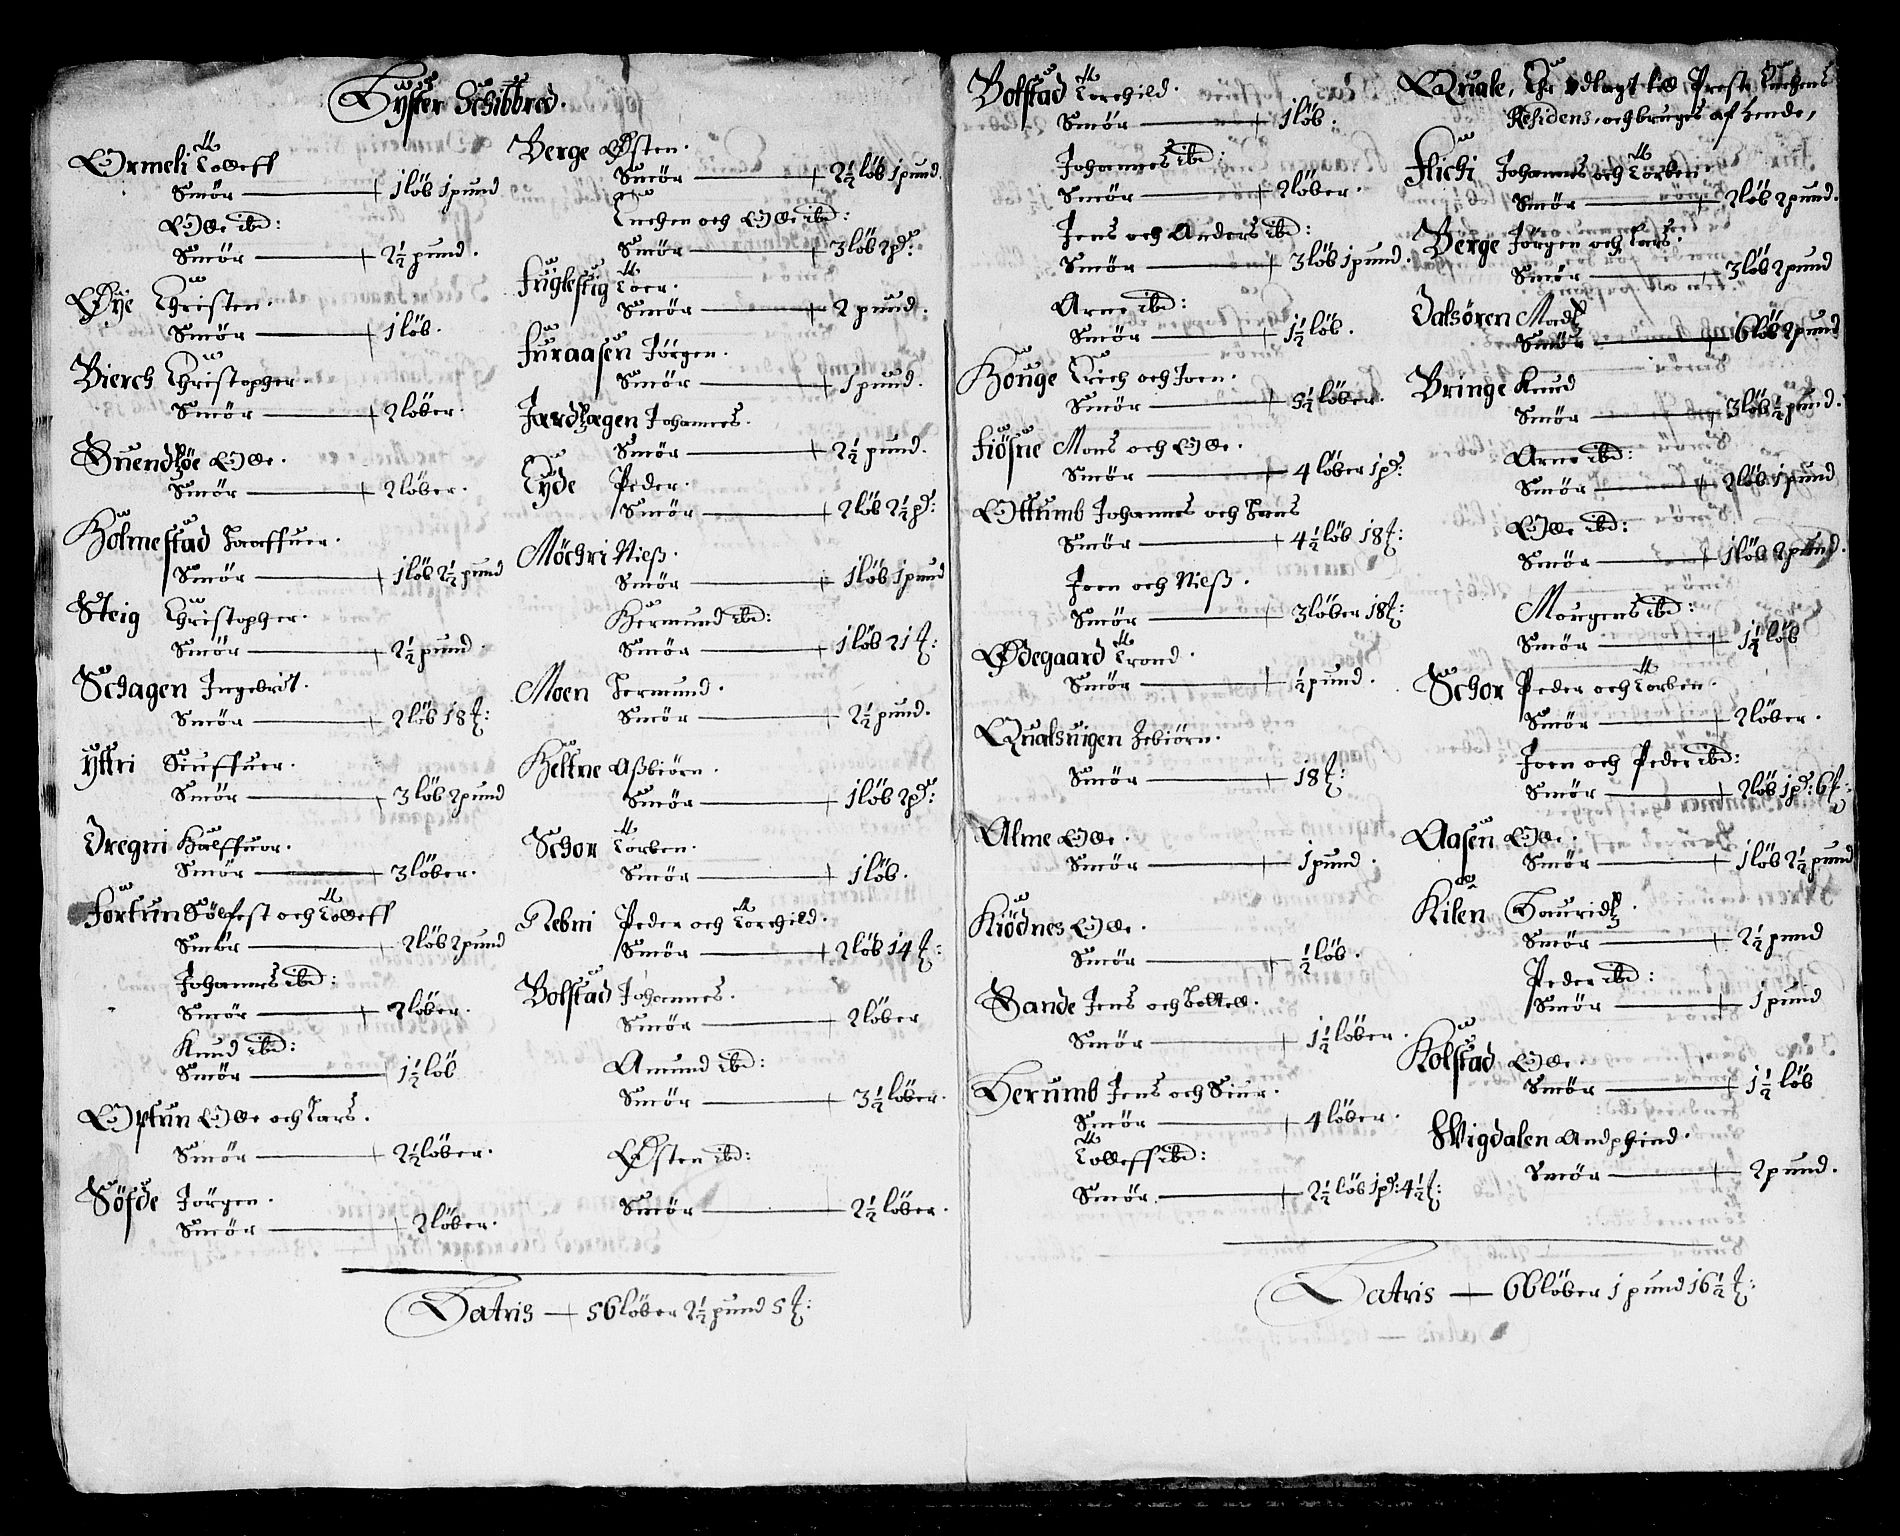 Lyster Schibbred.
Ormeli Tolleff
Smör — 1 löb 1 pund
Olle ibd:
Smör — 2½ pund.
Øÿe Christen.
Smör — 1 löb.
Bierch Christopher.
Smör — 2 löber.
Suendßöe Olle.
Smör — 2 löber.
Holmestad Haaffuer.
Smör — 1 löb 2½ pund
Steig Christopher.
Smör — 2½ pund.
Schagen Ingebrit.
Smör — 2 löb 18 ℔:
Yttri Siuffuer.
Smör — 3 löb 2 pund
Dregni Halffuor.
Smör — 3 löber.
Fortun Sölfest och Tolleff
Smör — 2 löb 2 pund
Johannes ibd:
Smör — 2 löber.
Knud ibd:
Smör — 1½ löb
Optun Olle och Lars.
Smör — 2½ löber.
Söfde Jörgen.
Smör — 2 löber.
Berge Østen.
Smör — 2½ löb 1 pund.
Enchen och Olle ibd:
Smör — 3 löb 2 pd:
Fuglestig Toer.
Smör — 2 pund.
Furaasen Jörgen.
Smör — 1 pund.
Jardßagen Johannes.
Smör — 2½ pund.
Eyde Peder.
Smör — 2 löb 2½ pd:
Möchri Nielß.
Smör — 1 löb 1 pund
Hermund ibd:
Smör — 1 löb 21 ℔:
Moen Hermund.
Smör — 2½ pund.
Heltne Aßbiörn.
Smör — 1 löb 2 pd:
Schor Torben.
Smör — 1 löb.
Nebni Peder och Torchild.
Smör — 2 löb 14 ℔:
Bolstad Johannes.
Smör — 2 löber
Amund ibd:
Smör — 3½ löber.
Østen ibd:
Smör — 2½ löber.
Latris — 56 löber 2½ pund 5 ℔:
Bolstad Torchild.
Smör — 1 löb.
Johannes ibd:
Smör — 2 löber.
Jens och Anders ibd:
Smör — 3 löb 1 pund.
Arne ibd:
Smör — 1½ löb.
Houge Erich och Joen.
Smör — 5½ löber.
Fiösne Mons och Olle.
Smör — 4 löber 1 pd:
Ottumb Johannes och Hans
Smör — 4½ löb 18 ℔:
Joen och Nielß.
Smör — 3 löber 18 ℔:
Ødegaard Trond.
Smör — ½ pund.
Qualsuigen Isbiörn.
Smör — 18 ℔:
Alme Olle.
Smör — 1 pund.
Kiödnes Olle.
Smör — ½ löb.
Sande Jens och
Smör — 1½ löber.
Herumb Jens och Siur.
Smör — 4 löber.
Tolleff ibd:
Smör — 2½ löb 1 pd: 4½ ℔:
Quale, Er udlagt till Preste Enchens
Residens, och bruges af hende,
Flichi Johannes och Torben
Smör — 2 löb 2 pund.
Berge Jörgen och Lars.
Smör — 3 löb 2 pund
Dalsören Madß
Smör — 6 löb 2 pund
Bringe Knud
Smör — 3 löb ½ pund.
Arne ibd:
Smör — 2 löb 1 pund
Olle ibd:
Smör — 1 löb 2 pund.
Mougens ibd:
Smör — 1½ löb
Schor Peder och Torben.
Smör — 2 löber.
Joen och Peder ibd:
Smör — 2 löb 1 pd: 6 ℔:
Aasen Olle.
Smör — 1 löb 2½ pund
Kilen Lauridß.
Smör — 2½ pund
Peder ibd:
Smör — 1 pund
Kolstad Olle
Smör — 1½ löb
Wigdalen Andphind.
Smör — 2 pund.
Latris — 66 löber 1 pund 16½ ℔: